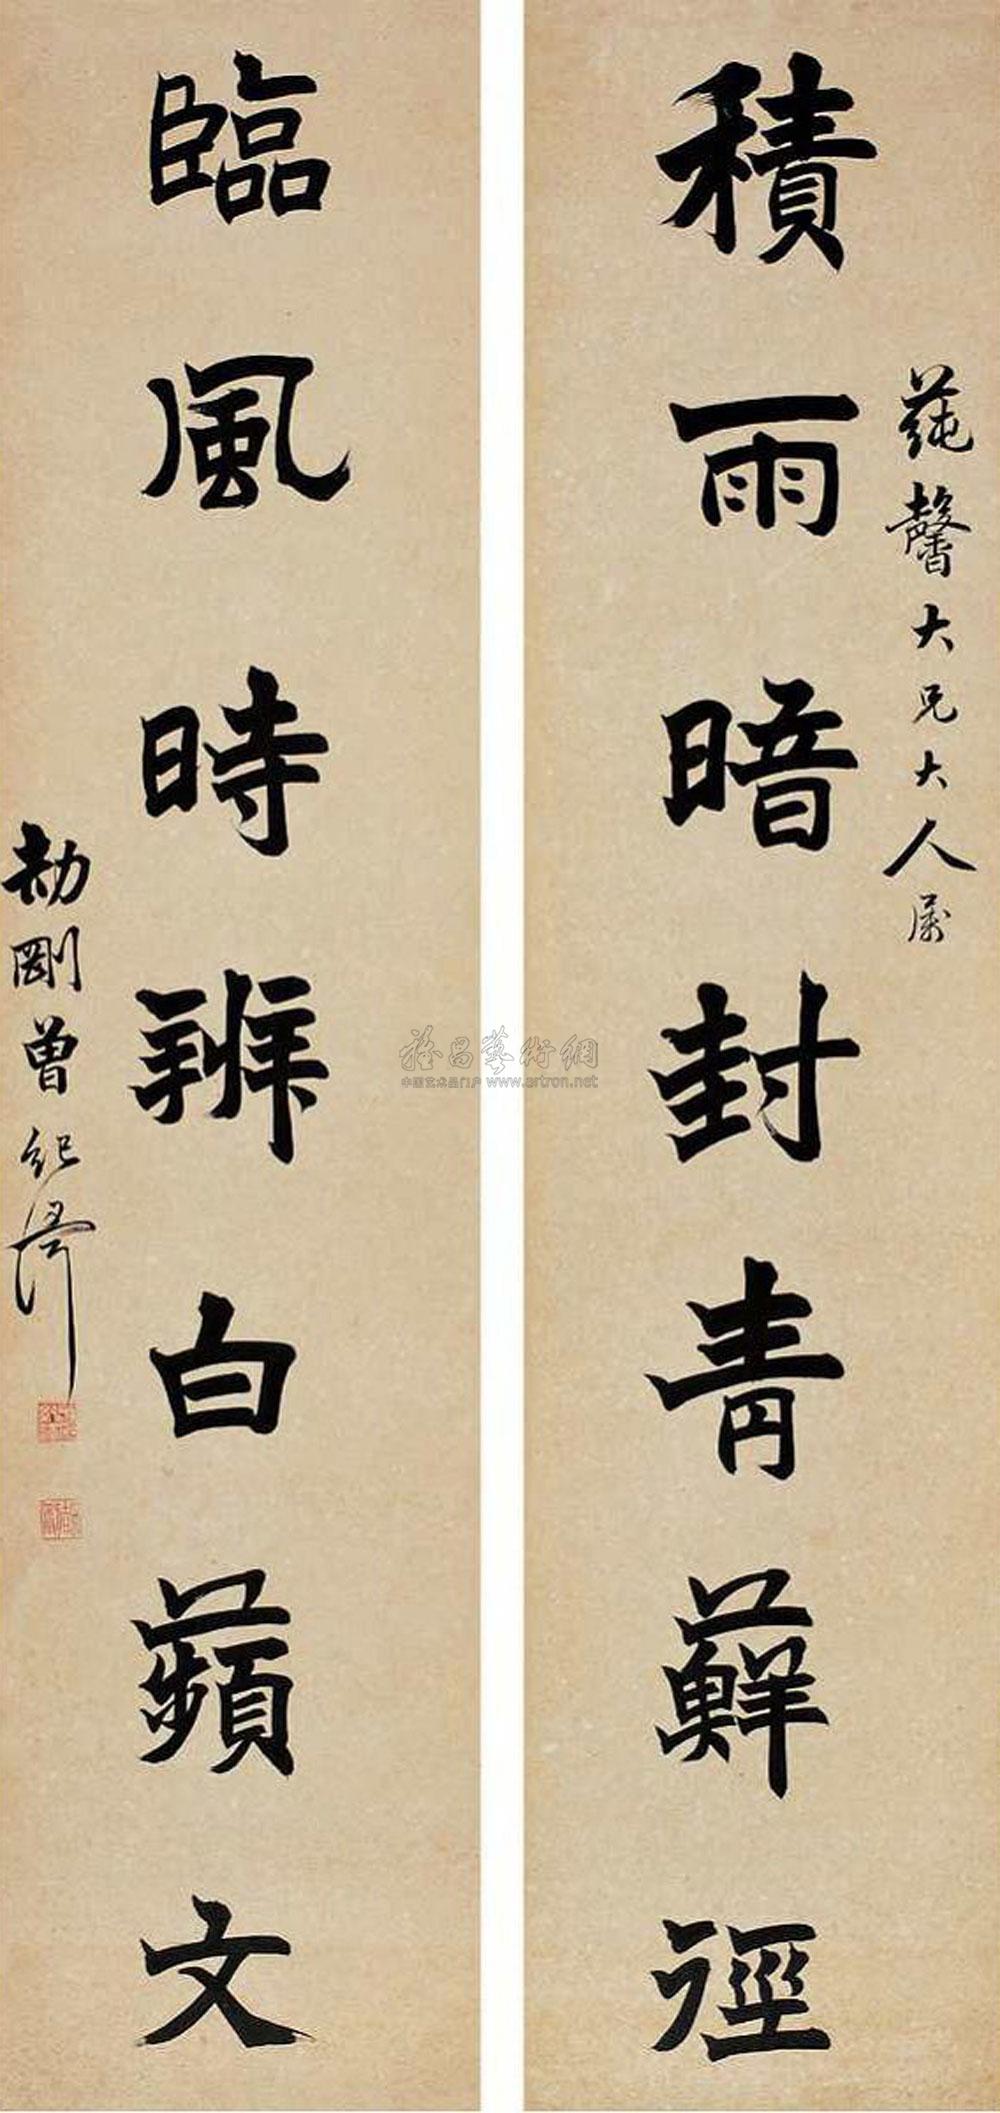 積雨暗封青蘚徑
蒓馨大兄大人屬
臨風時辨白蘋文
劼剛曾紀澤
雅昌藝術網
中国艺术品门户 www.artron.net